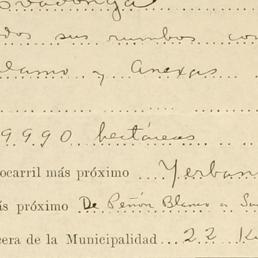 Covadonga
dos sus rumbos con
Alamo y Anexas
9.990 hectáreas
ocarril más próximo Yerban
ás próximo De Peñón Blanco a Sa
cera de la Municipalidad 22 K